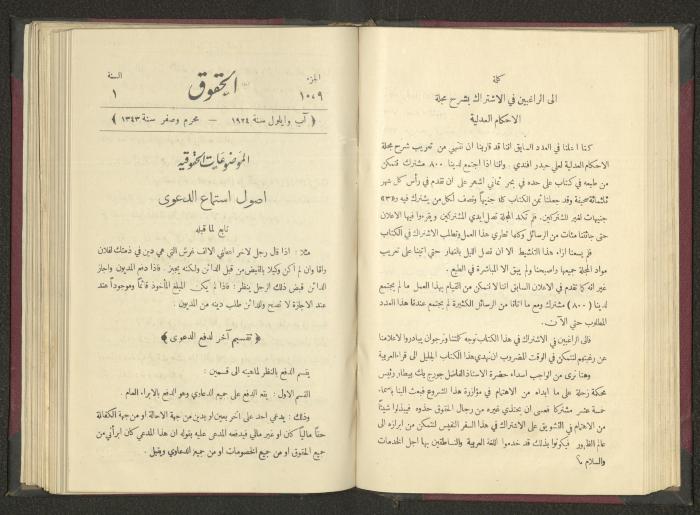 كلمة
الى الراغبين في الاشتراك بشرح مجلة
الاحكام العدلية
كنا اعلنا في العدد السابق اننا قد قاربنا ان ننتهي من تعريب شرح مجلة
الاحكام العدلية لعلي حيدر افندي . واننا اذا اجتمع لدينا ٨٠٠ مشترك نتمكن
من طبعه في كتاب على حده في بحر ثماني اشهر على ان نقدم في رأس كل شهر
ثلثمائة صحيفة وقد جعلنا ثمن الكتاب كله جنيهاً ونصف لكل من يشترك فيه و
جنيهات لغير المشتركين . فلم تكد المجلة تصل ايدي المشتركين ويقرءوا فيها الاعلان
حتى جائتنا مئات من الرسائل وكلها تطري هذا العمل وتطلب الاشتراك في الكتاب
فلم يسعنا ازاء هذا التنشيط الا ان نصل الليل بالنهار حتى اتينا على تعريب
مواد المجلة جميعها واصبحنا ولم يبق الا المباشرة في الطبع .
غير انه كما تقدم في الاعلان السابق اننا لا نتمكن من القيام بهذا العمل ما لم يجتمع
لدينا (٨٠٠) مشترك ومع ما اتانا من الرسائل الكثيرة لم يجتمع عندنا هذا العدد
المطلوب حتى الآن .
فالى الراغبين في الاشتراك في هذا الكتاب نوجه كلمتنا ونرجو ان يبادروا لاعلامنا
عن رغبتهم لنتمكن في الوقت المضروب ان نهدي هذا الكتاب الجليل الى قراء العربية
وهنا نرى من الواجب اسداء حضرة الاستاذ الفاضل جورج بك بيطار رئيس
محكمة زحلة على ما ابداه من الاهتمام في مؤازرة هذا المشروع فبعث الينا باسماء
خمسة عشر مشتركا فعسى ان يحتذي غيره من رجال الحقوق حذوه فيبذلوا شيئاً
من الاهتمام في التشويق على الاشتراك في هذا السفر النفيس لنتمكن من ابرازه الى
عالم الظهور فيكونوا بذلك قد خدموا اللغة العربية والناطقين بها اجل الخدمات
والسلام ؟
الجزء
٩و١٠
الحقوق
السنة
١
﴿ آب وايلول سنة ١٩٢٤ — محرم وصفر سنة ١٣٤٣ ﴾
الموضوعات الحقوقيه
اصول استماع الدعوى
تابع لما قبله
مثلا : اذا قال رجل لآخر اعطني الالف غرش التي هي دين في ذمتك لفلان
دائناً وان لم اكن وكيلا بالقبض من قبل الدائن ولكنه يجيز . فاذا دفع المديون واجاز
الدائن قبض ذلك الرجل ينظر : فاذا لم يكن المبلغ المأخوذ قائماً وموجوداً عند
عند الاجازة لا تصح وللدائن طلب دينه من المديون .
﴿ تقسيم آخر لدفع الدعوى ﴾
يقسم الدفع بالنظر لماهيته الى قسمين :
القسم الاول : يقع الدفع على جميع الدعاوي وهو الدفع بالابراء العام .
وذلك : يدعي احد على آخر بعين او بدين من جهة الاحالة او من جهة الكفالة
حقاً مالياً كان او غير مالي فيدفعه المدعى عليه بقوله ان هذا المدعي كان ابرأني من
جميع الحقوق او من جميع الخصومات او من جميع الدعاوي ويقبل .